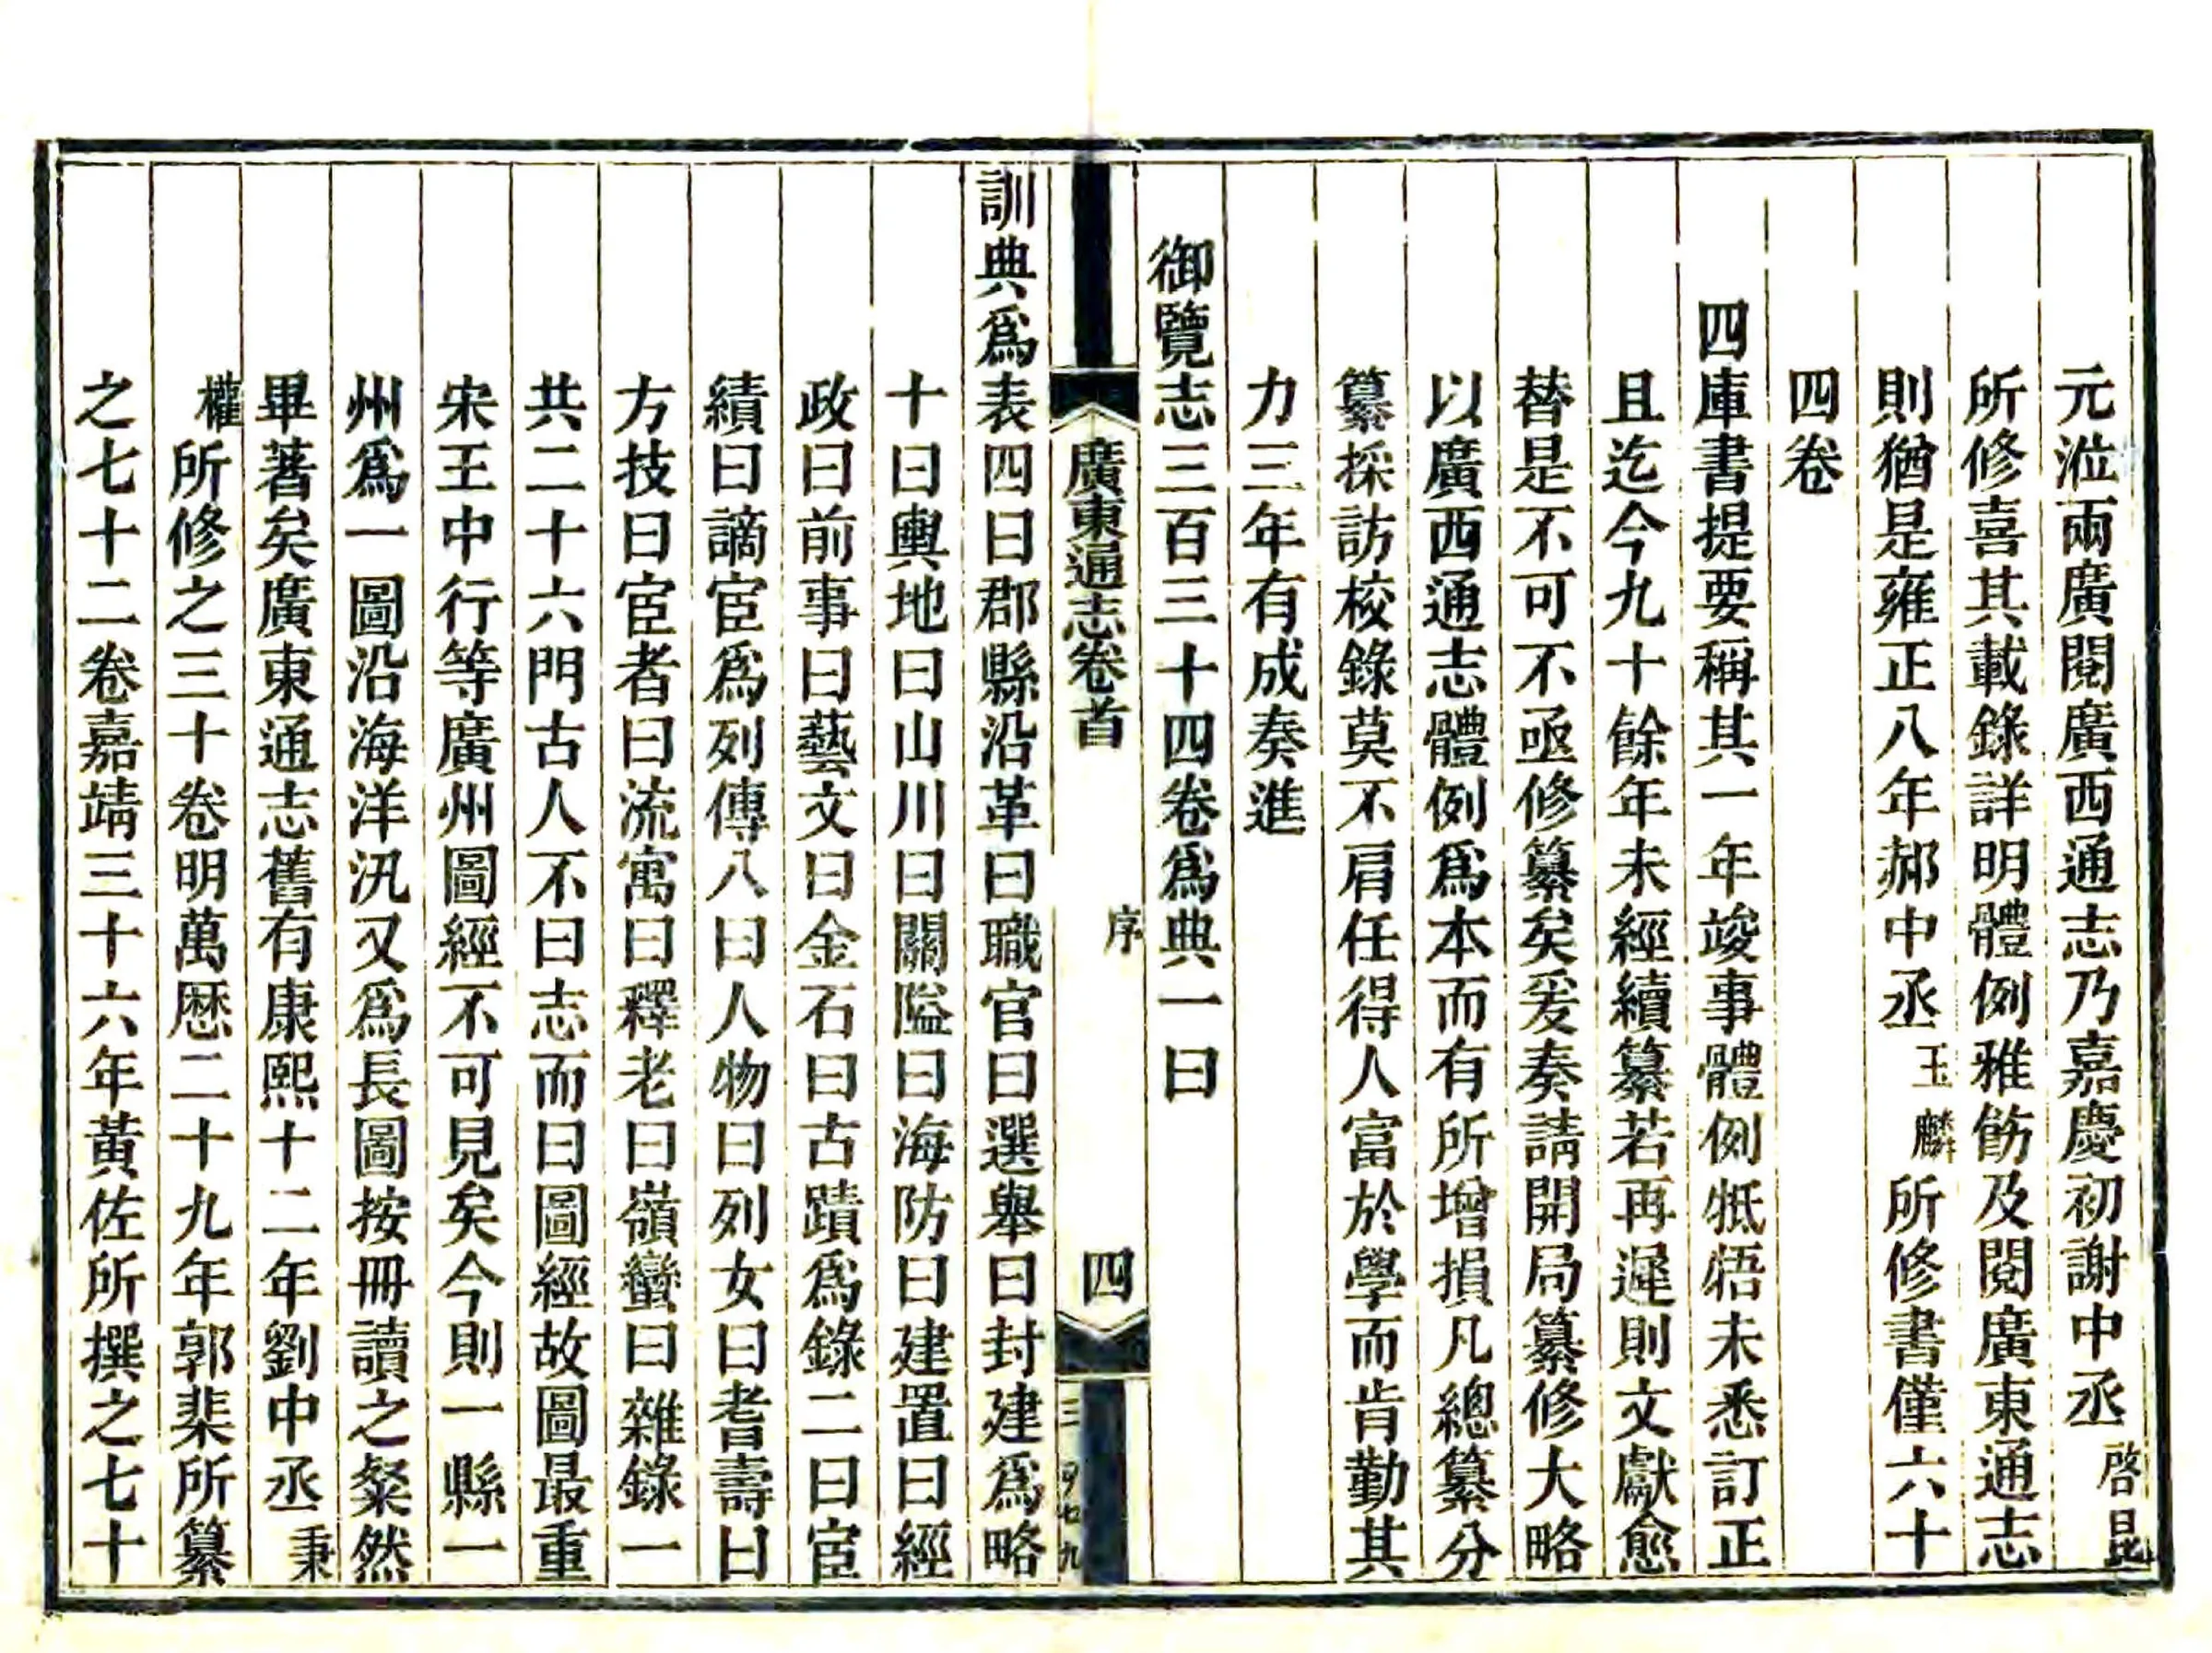 元涖兩廣閱廣西通志乃嘉慶初謝中丞啓昆
所修喜其載錄詳明體例雅飭及閱廣東通志
則猶是雍正八年郝中丞玉麟所修書僅六十
四卷
四庫書提要稱其一年竣事體例牴牾未悉訂正
且迄今九十餘年未經續纂若再遲則文獻愈
替是不可不亟修纂矣爰奏請開局纂修大略
以廣西通志體例爲本而有所增損凡總纂分
纂採訪校錄莫不肩任得人富於學而肯勤其
力三年有成奏進
御覽志三百三十四卷爲典一曰
廣東通志卷首
序
四
訓典爲表四曰郡縣沿革曰職官曰選舉曰封建爲略
十曰輿地曰山川曰關隘曰海防曰建置曰經
政曰前事曰藝文曰金石曰古蹟爲錄二曰宦
績曰謫宦爲列傳八曰人物曰列女曰耆壽曰
方技曰宦者曰流寓曰釋老曰嶺蠻曰雜錄一
共二十六門古人不曰志而曰圖經故圖最重
宋王中行等廣州圖經不可見矣今則一縣一
州爲一圖沿海洋汛又爲長圖按冊讀之粲然
畢著矣廣東通志舊有康熙十二年劉中丞秉
權所修之三十卷明萬厯二十九年郭棐所纂
之七十二卷嘉靖三十六年黃佐所撰之七十